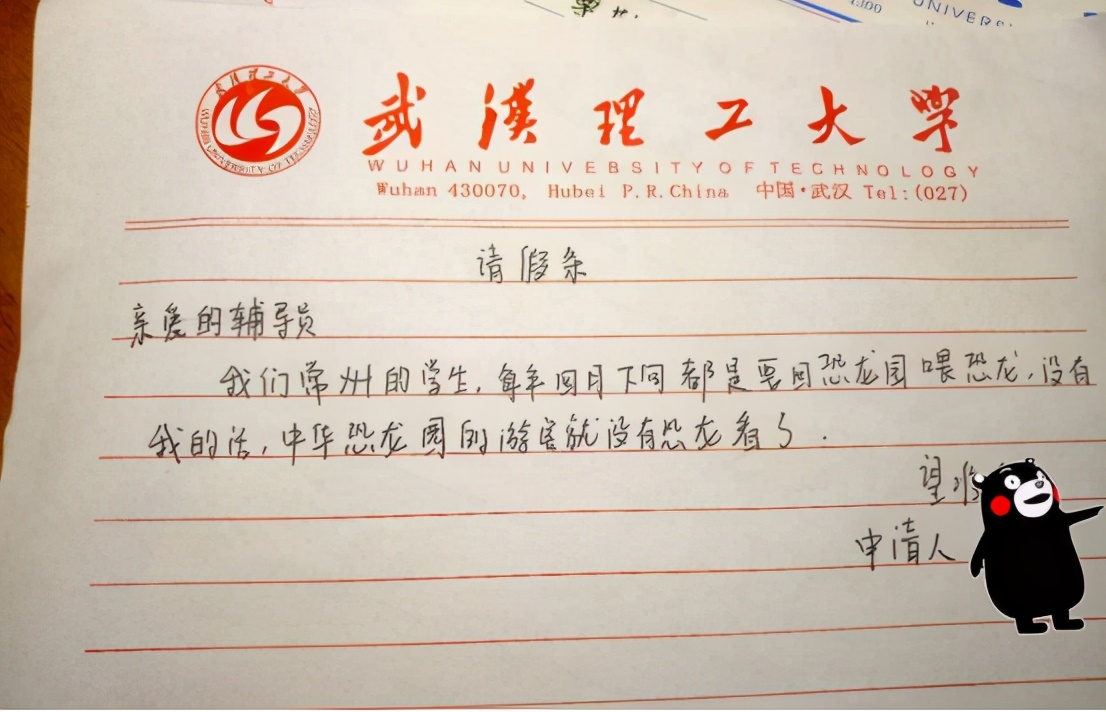 武漢理工大学
WUHAN UNIVERSITY OF TECHNOLOGY
Wuhan 430070, Hubei P.R.China 中国·武汉 Tel:(027)
请假条
亲爱的辅导员
我们常州的学生,每年四月下旬都是要回恐龙园喂恐龙,没有
我的话,中华恐龙园的游客就没有恐龙看了.
望准
申请人